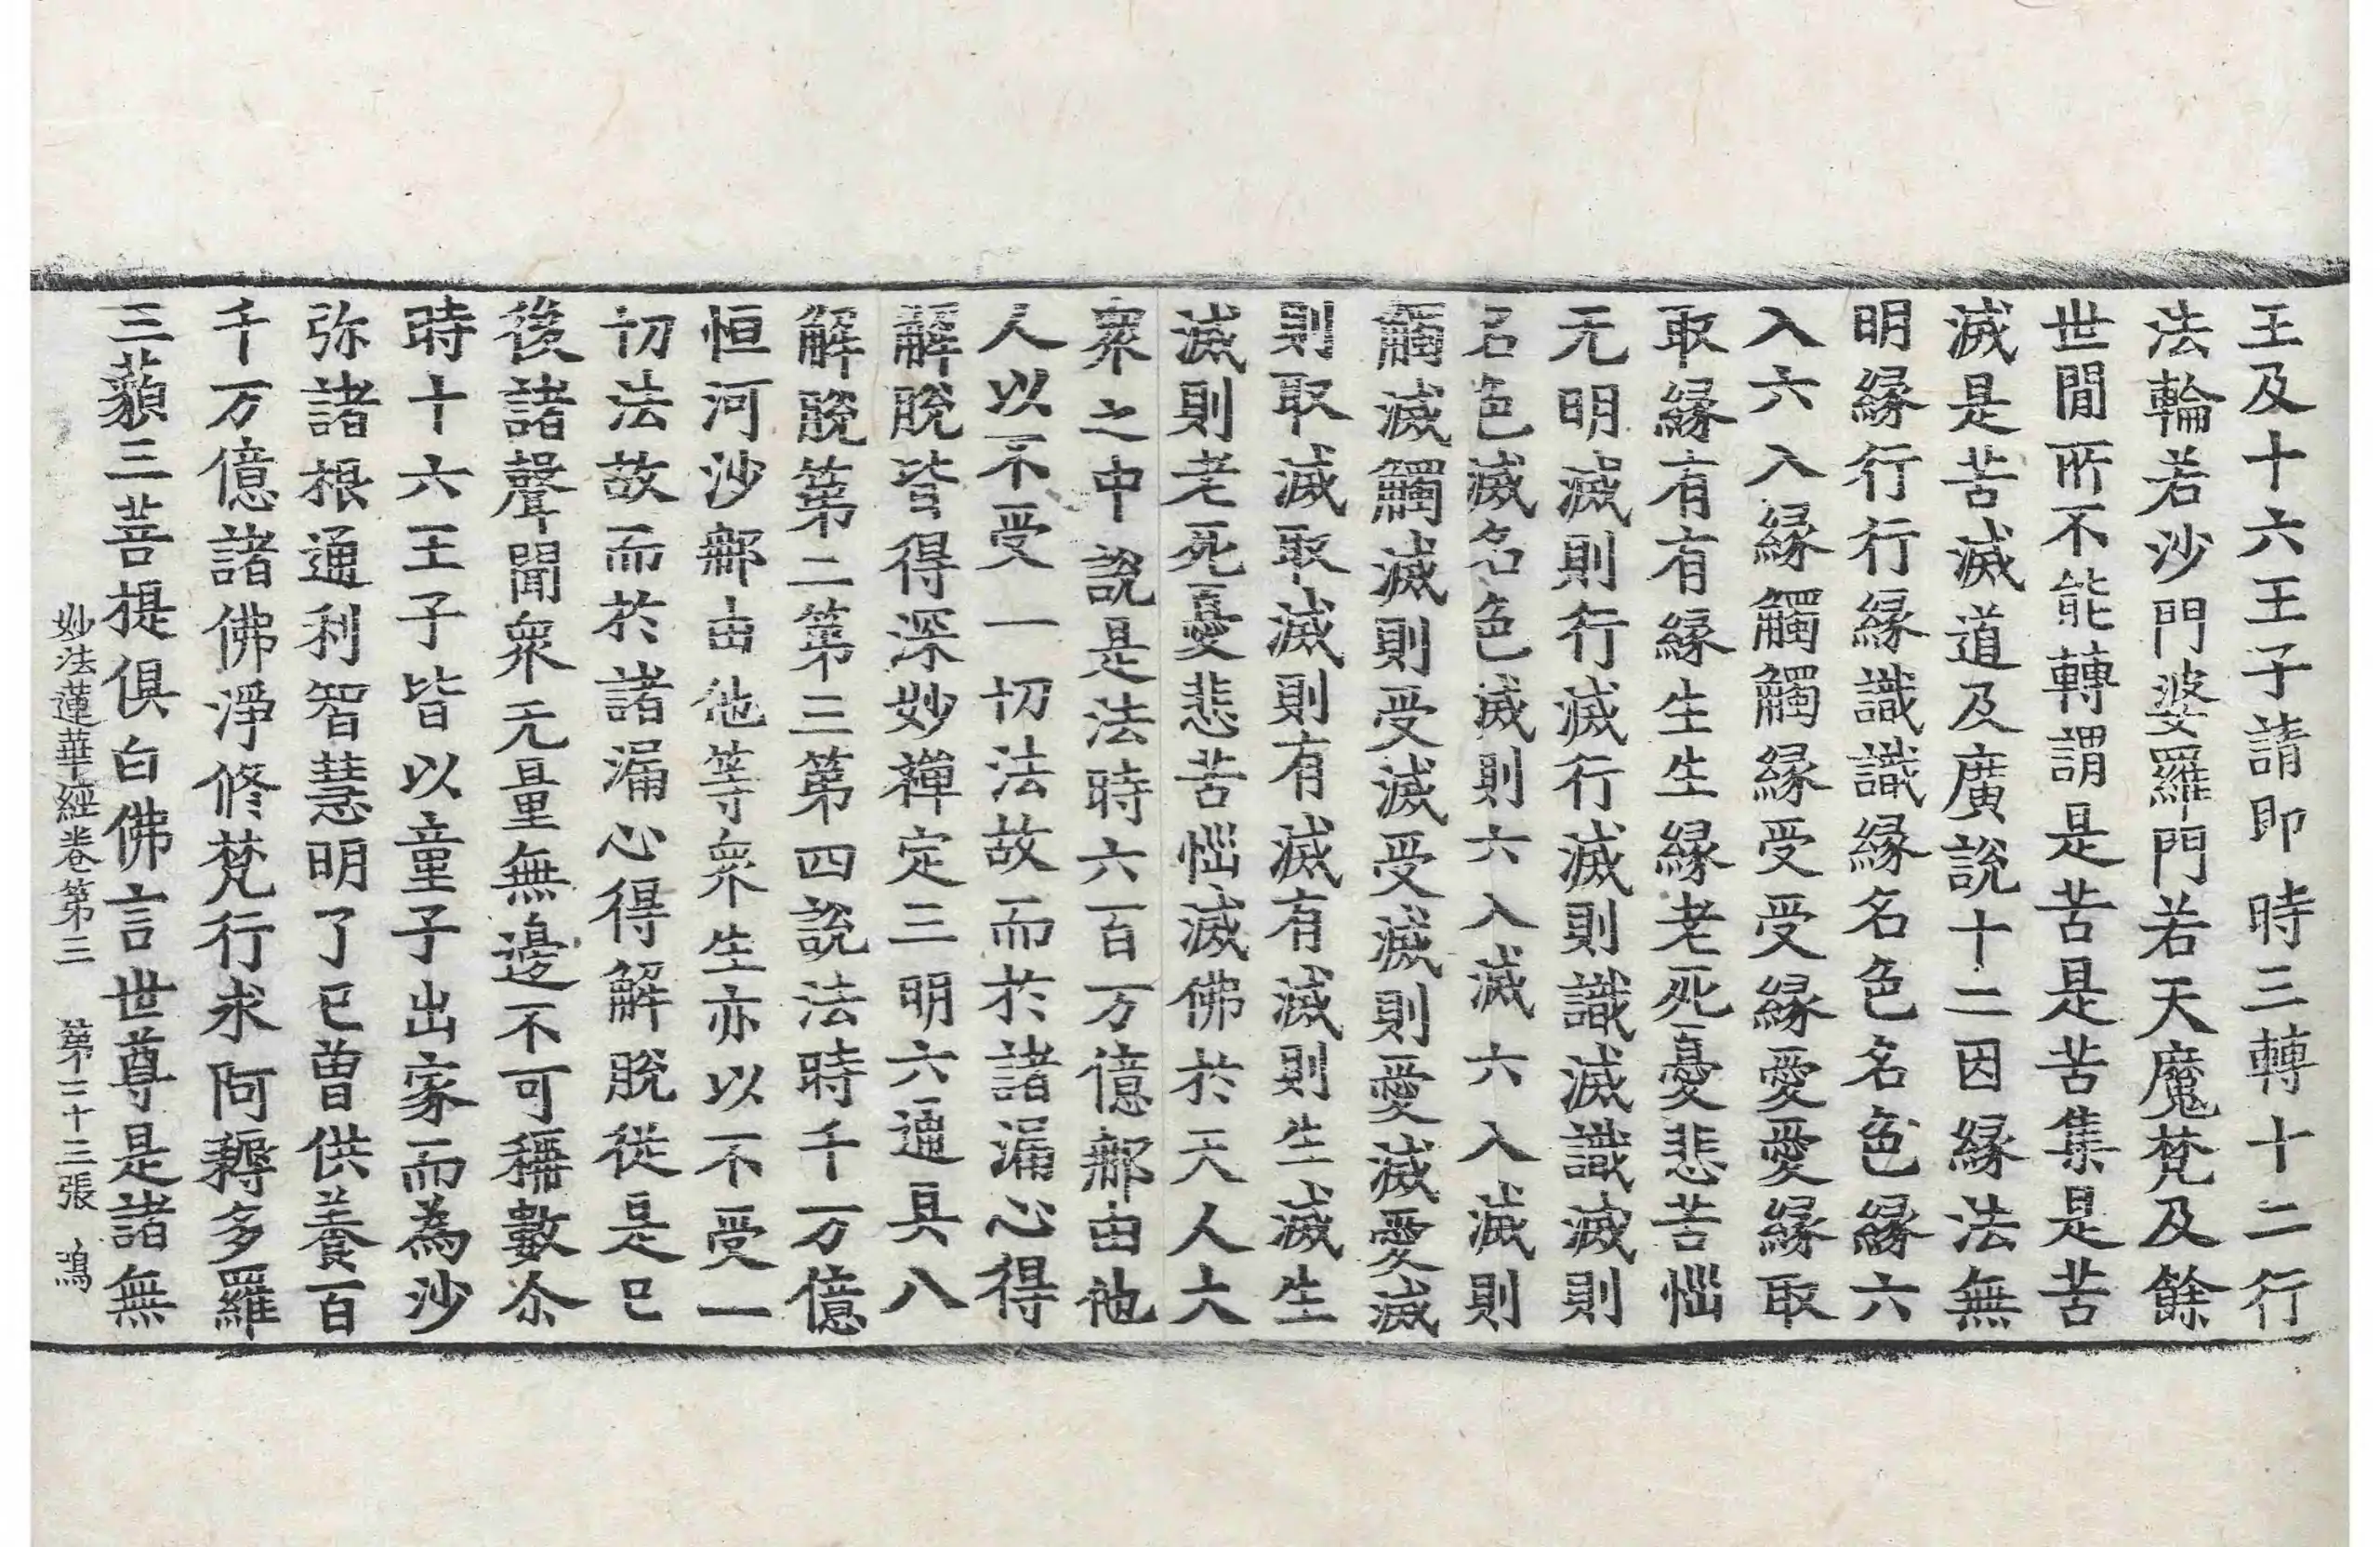 王及十六王子請即時三轉十二行
法輪若沙門婆羅門若天魔梵及餘
世間所不能轉謂是苦是苦集是苦
滅是苦滅道及廣說十二因緣法無
明緣行行緣識識緣名色名色緣六
入六入緣觸觸緣受受緣愛愛緣取
取緣有有緣生生緣老死憂悲苦惱
无明滅則行滅行滅則識滅識滅則
名色滅名色滅則六入滅六入滅則
觸滅觸滅則受滅受滅則愛滅愛滅
則取滅取滅則有滅有滅則生滅生
滅則老死憂悲苦惱滅佛於天人大
衆之中說是法時六百万億那由他
人以不受一切法故而於諸漏心得
解脫皆得深妙禪定三明六通具八
解脫第二第三第四說法時千万億
恒河沙那由他等衆生亦以不受一
切法故而於諸漏心得解脫從是已
後諸聲聞衆无量無邊不可稱數尒
時十六王子皆以童子出家而為沙
弥諸根通利智慧明了已曾供養百
千万億諸佛淨修梵行求阿耨多羅
三藐三菩提俱白佛言世尊是諸無
妙法蓮華經卷第三　第二十三張　鴻